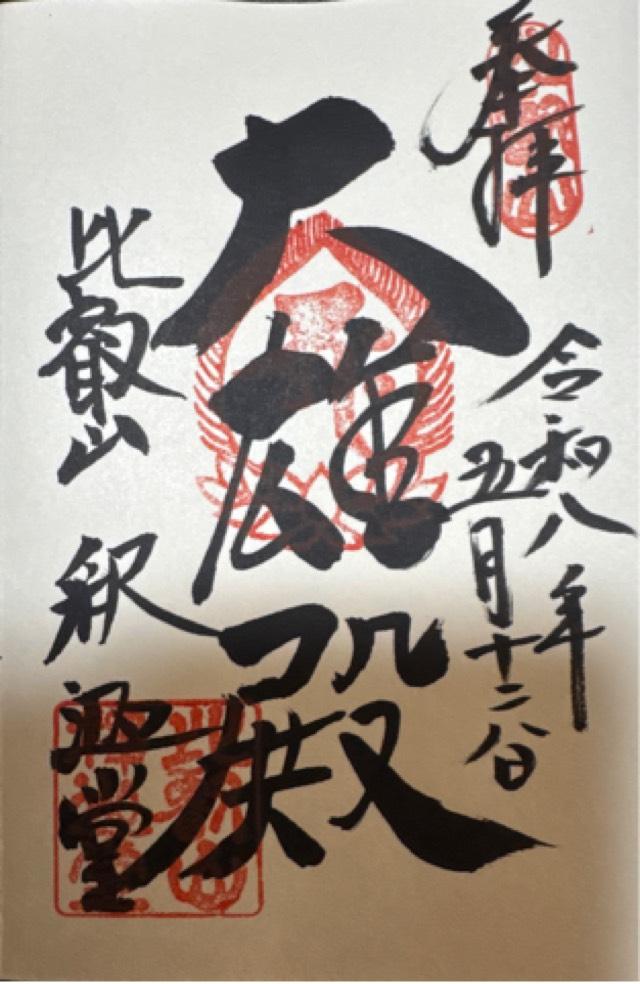 奉拝
令和八年
五月十二日
大雄殿
比叡山 釈迦堂